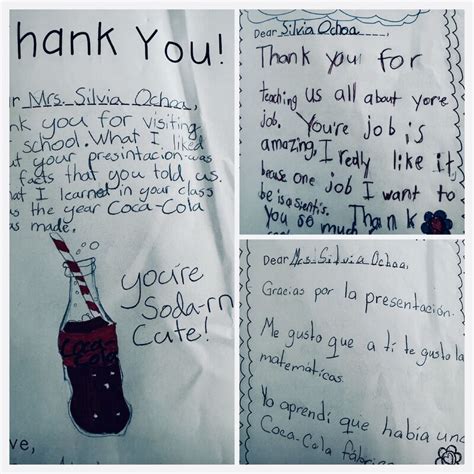 hank You!
r Mrs. Silvia Ochoa,
nk you for visiting
school. What I liked
ut your presintacion was
facts that you told us.
at I learned in your class
s the year Coca-Cola
as made.
you're
Soda-rn
Cute!
Coca
Cola
ve,
Dear Silvia Ochoa,
Thank you for
teaching us all about yore
job. You're job is
amazing, I relly like it,
becuse one job I want to
be is a sientis.
You so much Thank
Dear Mrs. Silvia Ochoa,
Gracias por la presentación.
Me gusto que a ti te gusto la
matematicas.
Yo aprendí que había una
Coca-Cola fábrica